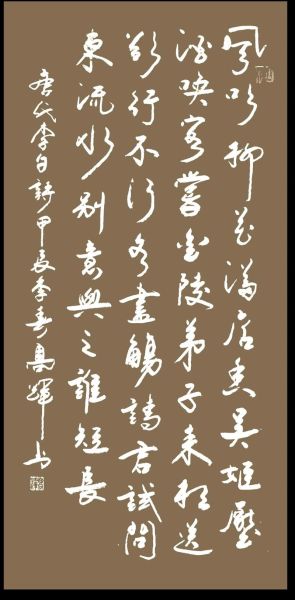 風吹柳花滿店香吳姬壓
酒喚客嘗金陵弟子來相送
欲行不行各盡觴請君試問
東流水別意與之誰短長
唐代李白詩甲辰季春高輝书